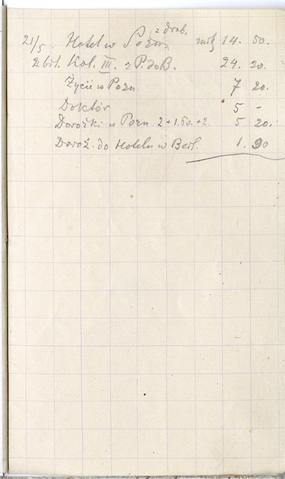 z drob.
21/5 Hotel w Pozn. mk 14. 50.
2 bil. kol. III. z P. do B. 24. 20.
Życie w Pozn 7 20.
Doktór 5 -
Dorożki w Pozn. 2+1.50.+2. 5 20.
Doroż. do Hotelu w Berl. 1. 90